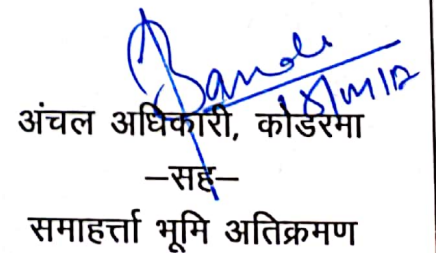 अंचल अधिकारी, कोडरमा
–सह–
समाहर्त्ता भूमि अतिक्रमण